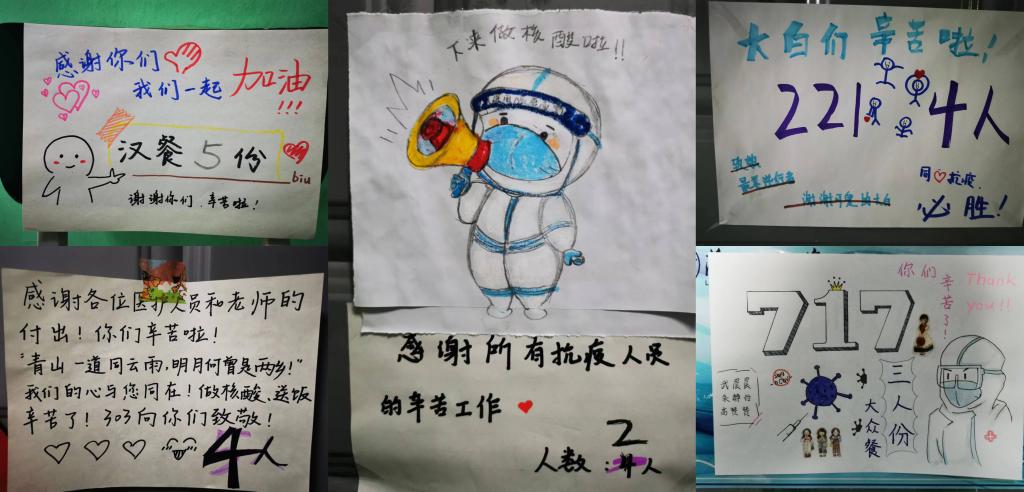 感谢你们
我们一起
加油
!!!
汉餐5份
biu
谢谢你们,辛苦啦!
下来做核酸啦!!
感谢所有抗疫人员
的辛苦工作
2
人数:4人
大白们 辛苦啦!
221 4人
致敬
最美逆行者
谢谢可爱的大白
同抗疫
必胜!
感谢各位医护人员和老师的
付出!你们辛苦啦!
"青山一道同云雨,明月何曾是两乡!"
我们的心与您同在!做核酸、送饭
辛苦了!303向你们致敬!
4人
你们辛苦了!
Thank
you!!
717
三人份
大众餐